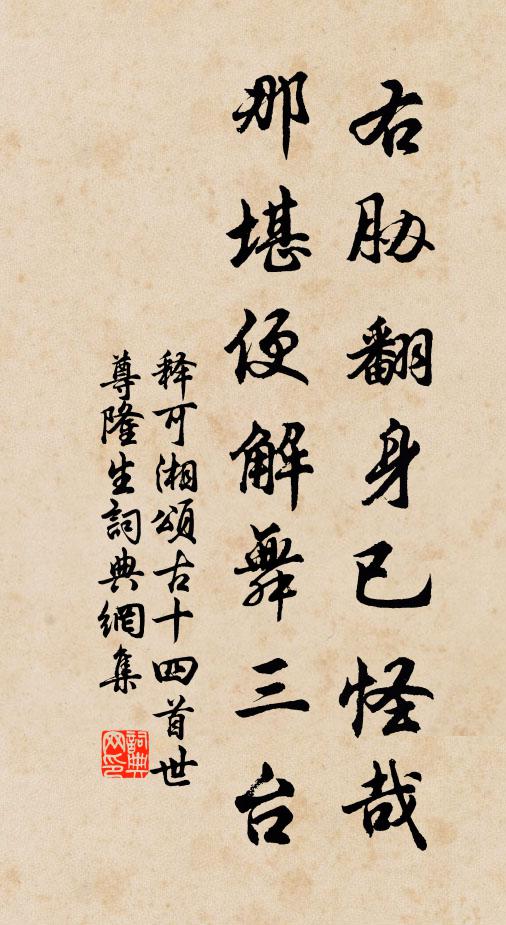 右胁翻身已怪哉
那堪便解舞三台
释可湘颂古十四首世
尊隆生詞典網集
詞典网印